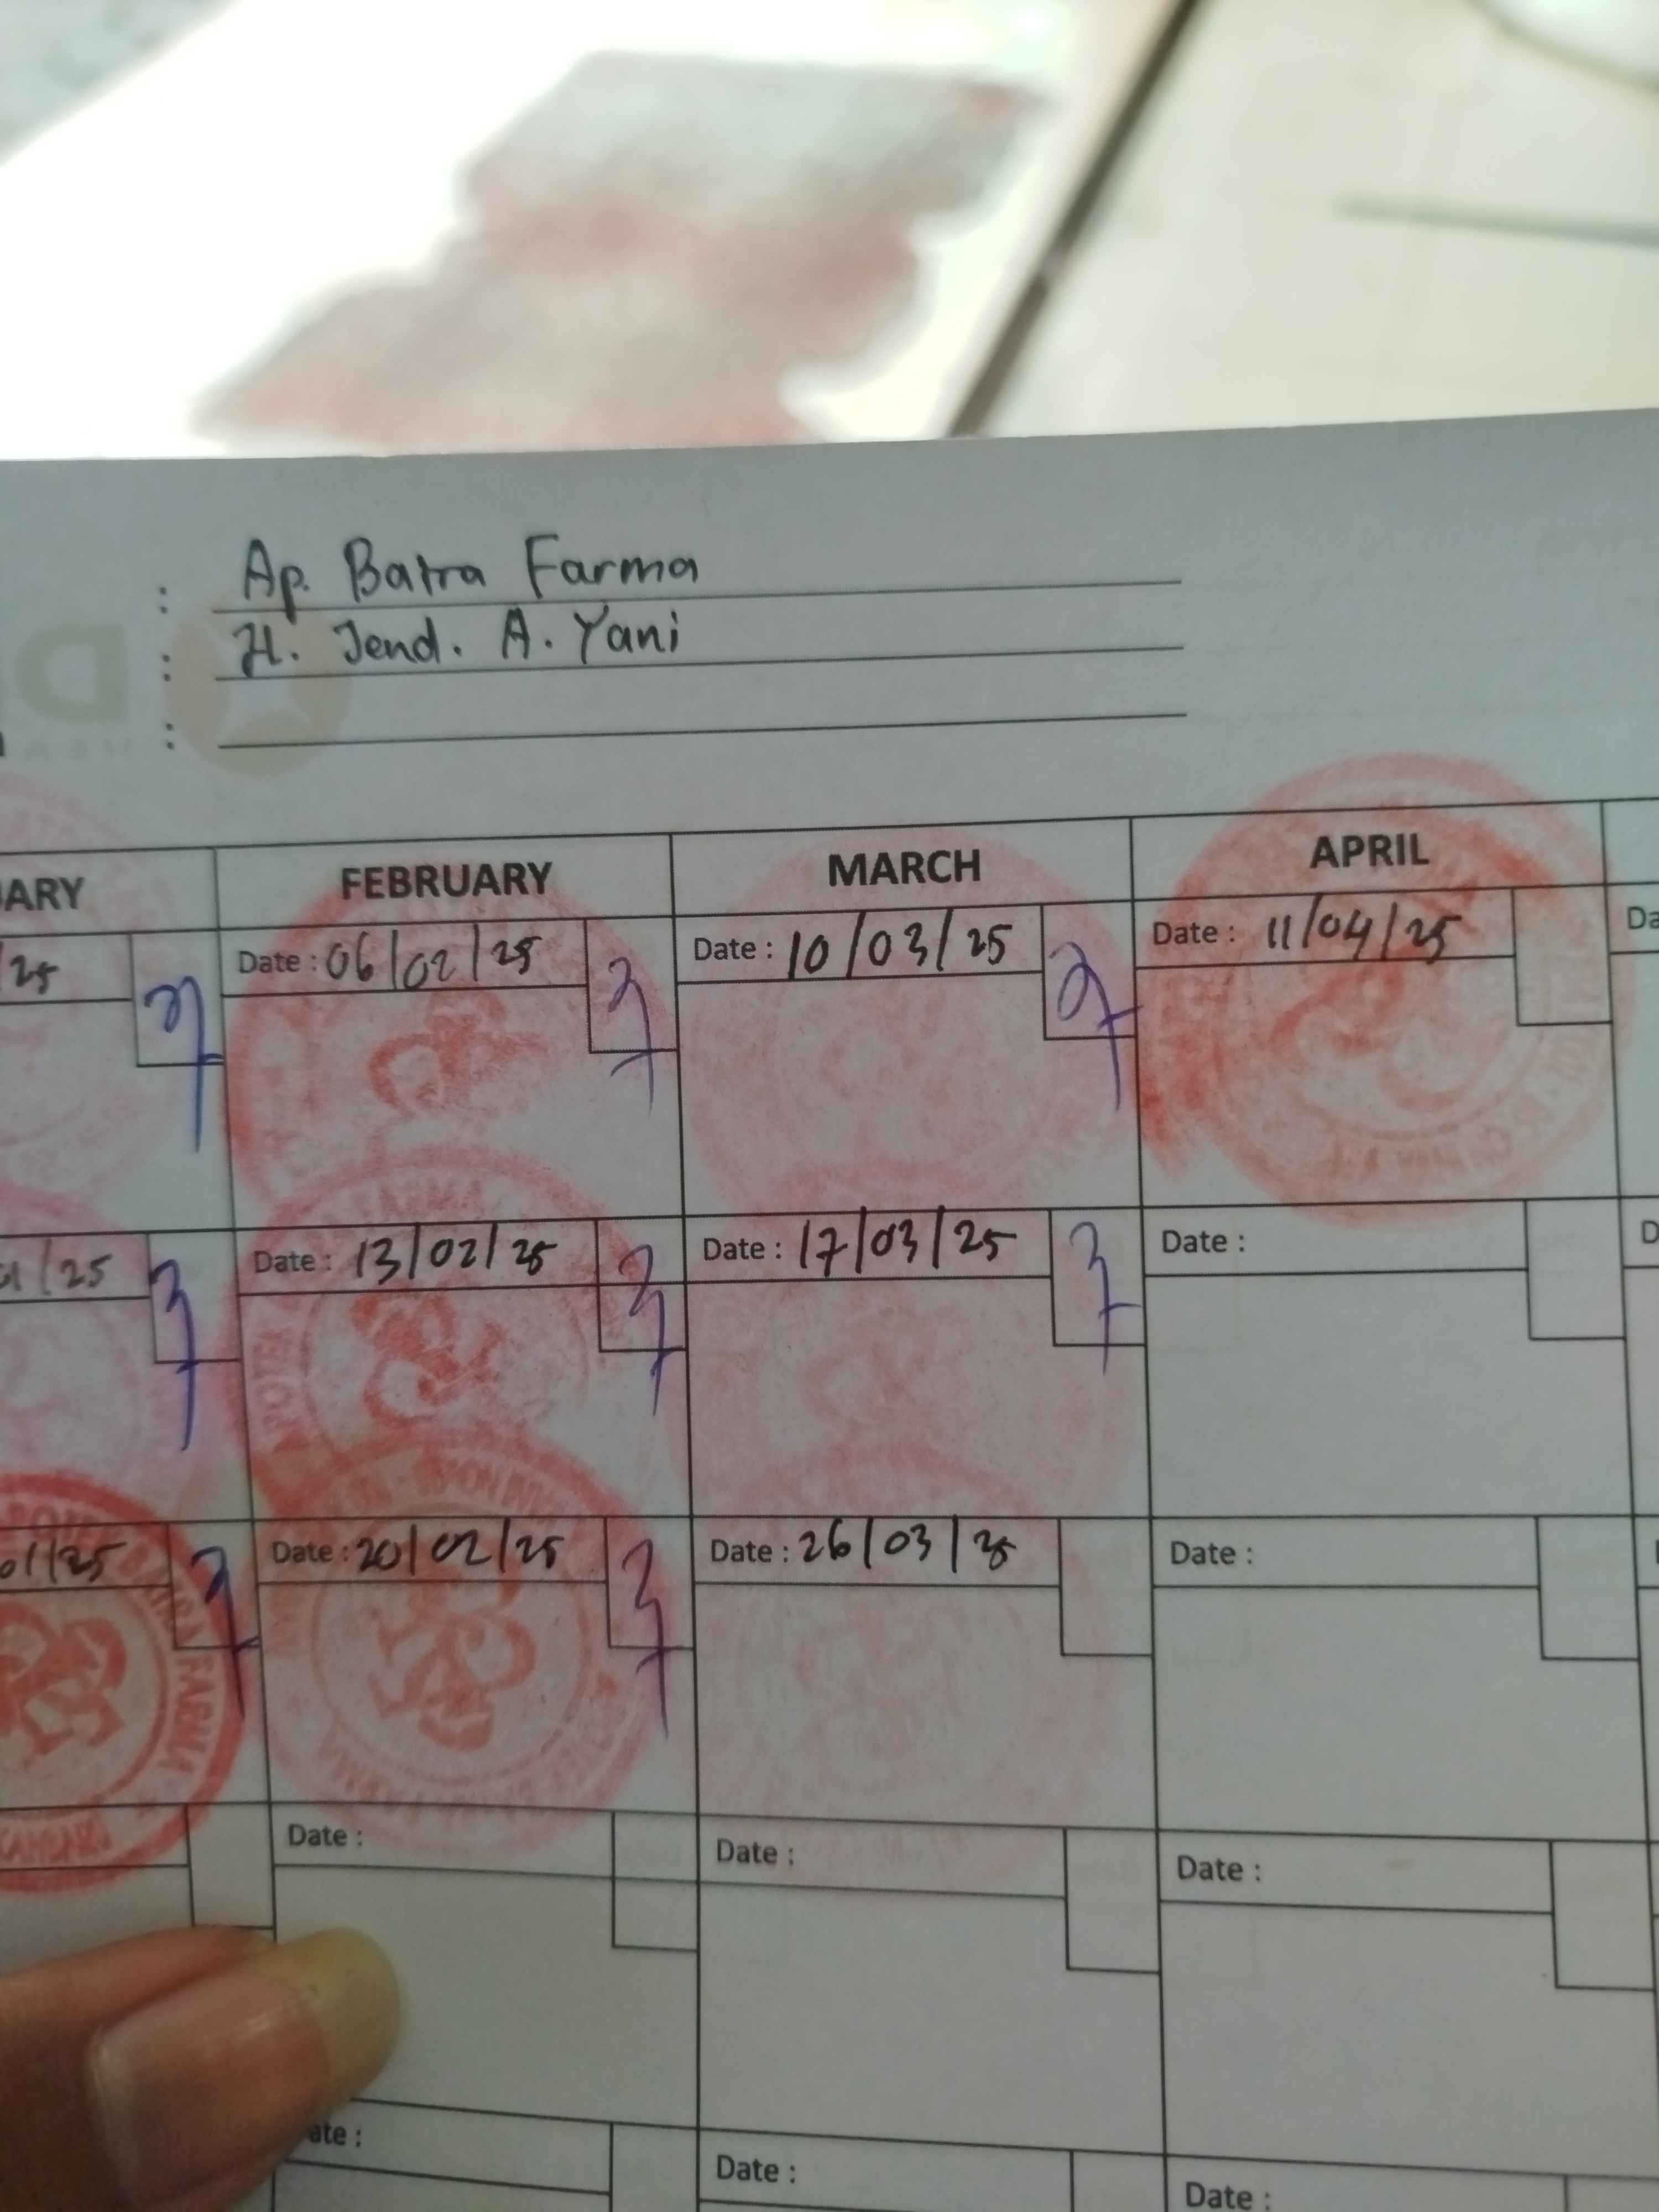 : Ap. Batra Farma
: Jl. Jend. A. Yani
:
ARY FEBRUARY MARCH APRIL
/25 Date : 06/02/25 Date : 10/03/25 Date : 11/04/25 Da
/25 Date : 13/02/25 Date : 17/03/25 Date : D
FARMA
01/25 Date : 20/02/25 Date : 26/03/25 Date :
FARMA
Date : Date : Date :
ate : Date : Date :